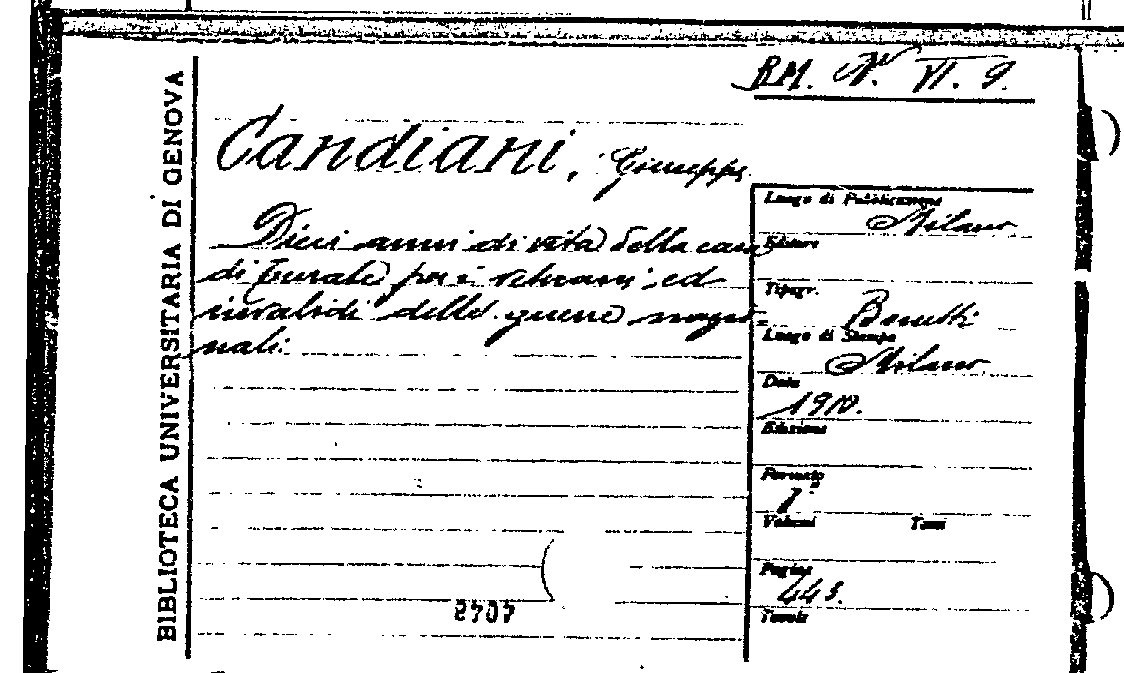 BIBLIOTECA UNIVERSITARIA DI GENOVA
RM. N. VI. 9.
Candiani, Giuseppe
Dieci anni di vita della casa
di Turate per i veterani ed
invalidi delle guerre nazio=
nali.
Luogo di Pubblicazione
Milano
Editore
Tipogr.
Bonetti
Luogo di Stampa
Milano
Data
1910.
Edizione
Formato
Volumi Tomi
Pagine
443.
Tavole
2707